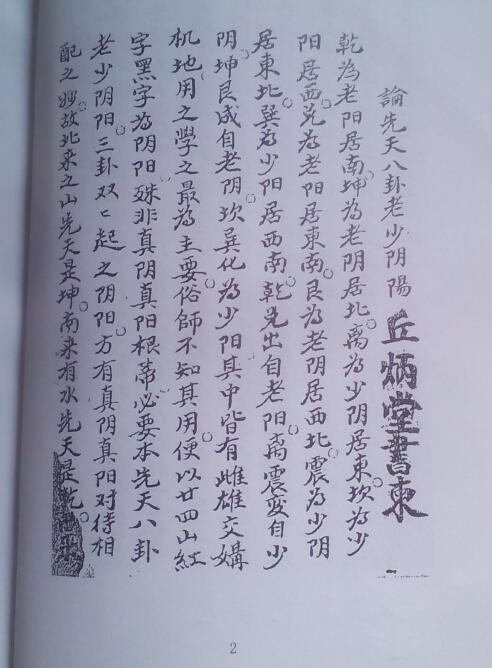 論先天八卦老少阴陽 丘炳堂書柬
乾為老阳居南坤為老阴居北离為少阴居東坎為少
阳居西兑為老阳居東南艮為老阴居西北震為少阴
居東北巽為少阳居西南乾兑出自老阳离震変自少
阴坤艮成自老阴坎巽化為少阳其中皆有雌雄交媾
机地用之學之最為主要俗師不知其用便以廿四山紅
字黑字為阴阳殊非真阴真阳根蒂必要本先天八卦
老少阴阳三卦双々起之阴阳方有真阴真阳对待相
配之妙故北来之山先天是坤南来有水先天是乾
2